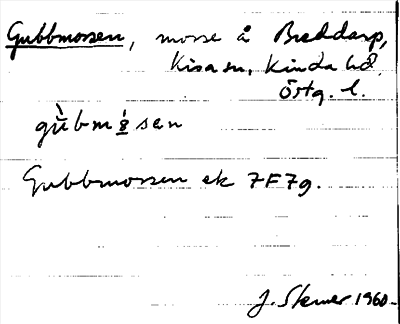 Gubbmossen, mosse å Breddarp,
Kisa sn, Kinda hd.
Östg. l.
gùbmósen
Gubbmossen ek 7F7g.
J. Sterner 1960